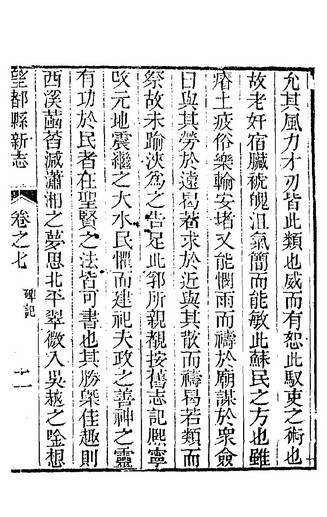 允其風力才刃皆此類也威而有恕此馭吏之術也
故老奸宿臟褫魄沮氣簡而能敏此蘇民之方也雖
瘠土疲俗樂輸安堵又能憫雨而禱於廟謀於衆僉
曰與其勞於遠曷若求於近與其散而禱曷若類而
祭故未踰浹為之告足此郭所親覩按舊志記熙寧
改元地震繼之大水民懼而建祀大政之善神之靈
有功於民者在聖賢之法皆可書也其勝槩佳趣則
西溪菡萏减瀟湘之夢思北平翠微入吳越之唫想
望都縣新志
卷之七
碑記
十一